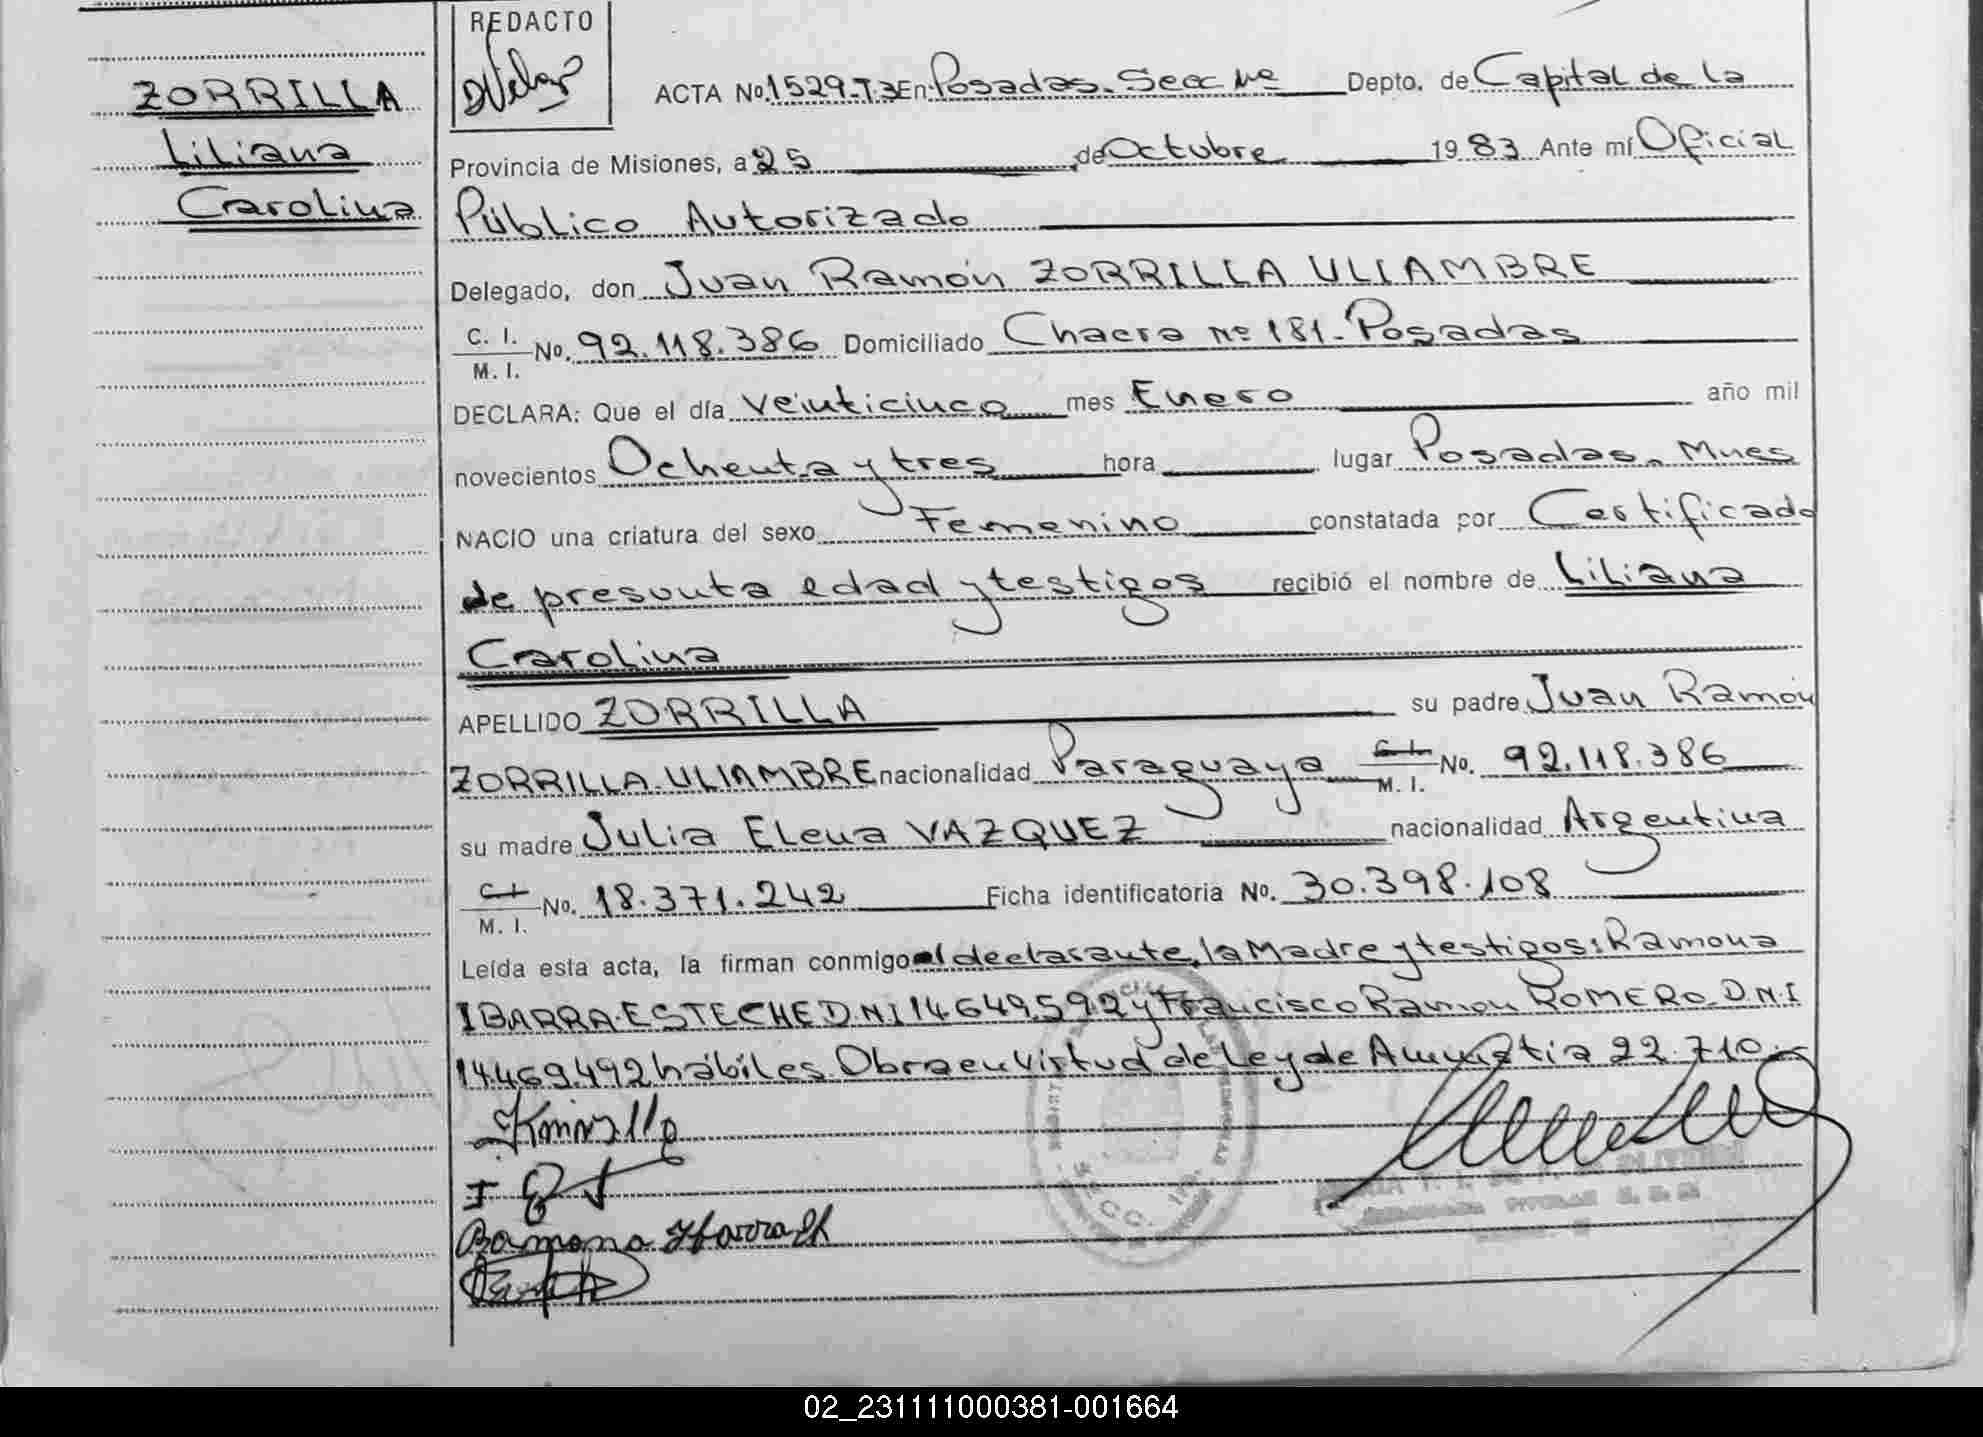 REDACTO
ZORRILLA
Liliana
Carolina
ACTA No. 1529-T3 En Posadas. Secc Nº Depto. de Capital de la
Provincia de Misiones, a 25 de Octubre 1983 Ante mí Oficial
Público Autorizado
Delegado, don Juan Ramón ZORRILLA ULIAMBRE
C. I.
M. I. No. 92.118.386 Domiciliado Chacra Nº 181-Posadas
DECLARA: Que el día veinticinco mes Enero año mil
novecientos Ochenta y tres hora lugar Posadas, Mnes
NACIO una criatura del sexo Femenino constatada por Certificado
de presunta edad y testigos recibió el nombre de Liliana
Carolina
APELLIDO ZORRILLA su padre Juan Ramón
ZORRILLA ULIAMBRE nacionalidad Paraguaya C. I.
M. I. No. 92.118.386
su madre Julia Elena VAZQUEZ nacionalidad Argentina
C. I.
M. I. No. 18.371.242 Ficha identificatoria No. 30.398.108
Leída esta acta, la firman conmigo el declarante, la Madre y testigos: Ramona
IBARRA ESTECHE D.N.I 14.649.592 y Francisco Ramon ROMERO D.N.I
14.469.492 hábiles. Obra en virtud de Ley de Amnistia 22.710.-
Ramona Ibarra
SECC.
02_231111000381-001664